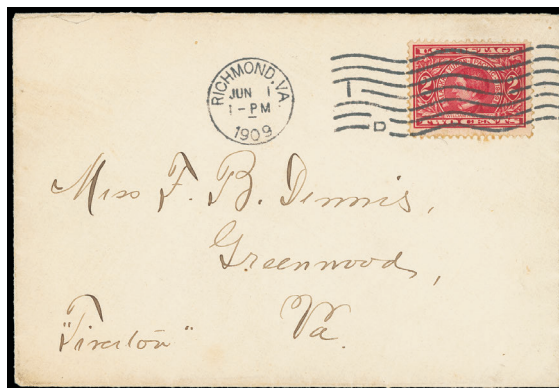 RICHMOND, VA.
JUN 1
1-PM
1909
U.S. POSTAGE
2 2
TWO CENTS
1
D
Miss F. B. Dennis,
Greenwood,
Va.
"Tiverton"